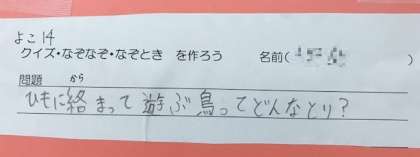 よこ14
クイズ・なぞなぞ・なぞとき を作ろう 名前( )
問題 から
ひもに絡まって遊ぶ鳥ってどんなとり?